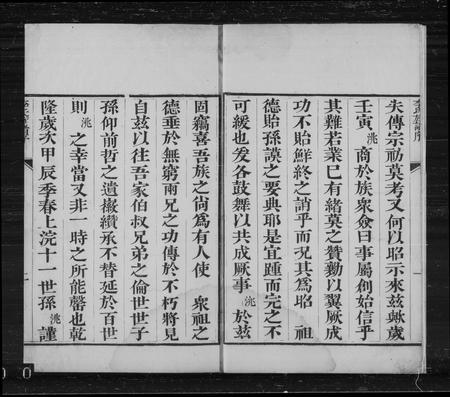 失傳宗祊莫考又何以昭示來茲歟歲
壬寅洮商於族眾僉曰事屬創始信乎
其難若業已有緒莫之贊勷以翼厥成
功不貽鮮終之誚乎而況其為昭 祖
德貽孫謨之要典耶是宜踵而完之不
可緩也爰各鼓舞以共成厥事洮於茲
固竊喜吾族之尚為有人使 眾祖之
德垂於無窮兩兄之功傳於不朽將見
自茲以往吾家伯叔兄弟之倫世世子
孫仰前哲之遺徽纘承不替延於百世
則洮之幸當又非一時之所能罄也乾
隆歲次甲辰季春上浣十一世孫洮謹